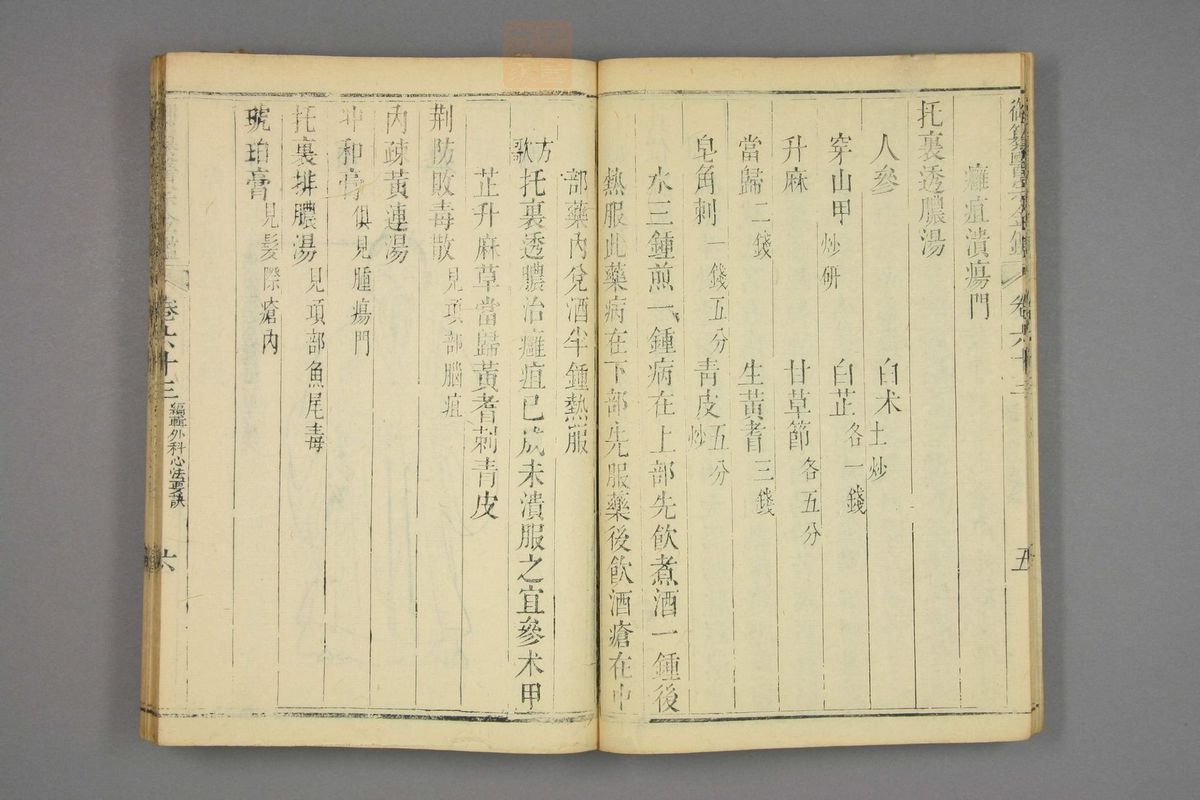 御纂醫宗金鑑 卷六十三 五
癰疽潰瘍門
托裏透膿湯
人參 白术土炒
穿山甲炒研 白芷各一錢
升麻 甘草節各五分
當歸二錢 生黃耆三錢
皂角刺一錢五分 青皮五分炒
水三鍾煎一鍾病在上部先飲煮酒一鍾後
熱服此藥病在下部先服藥後飲酒瘡在中
部藥內兌酒半鍾熱服
方歌 托裏透膿治癰疽已成未潰服之宜參术甲
芷升麻草當歸黃耆刺青皮
荆防敗毒散見項部腦疽
內疎黃連湯
冲和膏俱見腫瘍門
托裏排膿湯見項部魚尾毒
琥珀膏見髮際瘡內
卷六十三 編輯外科心法要訣 六